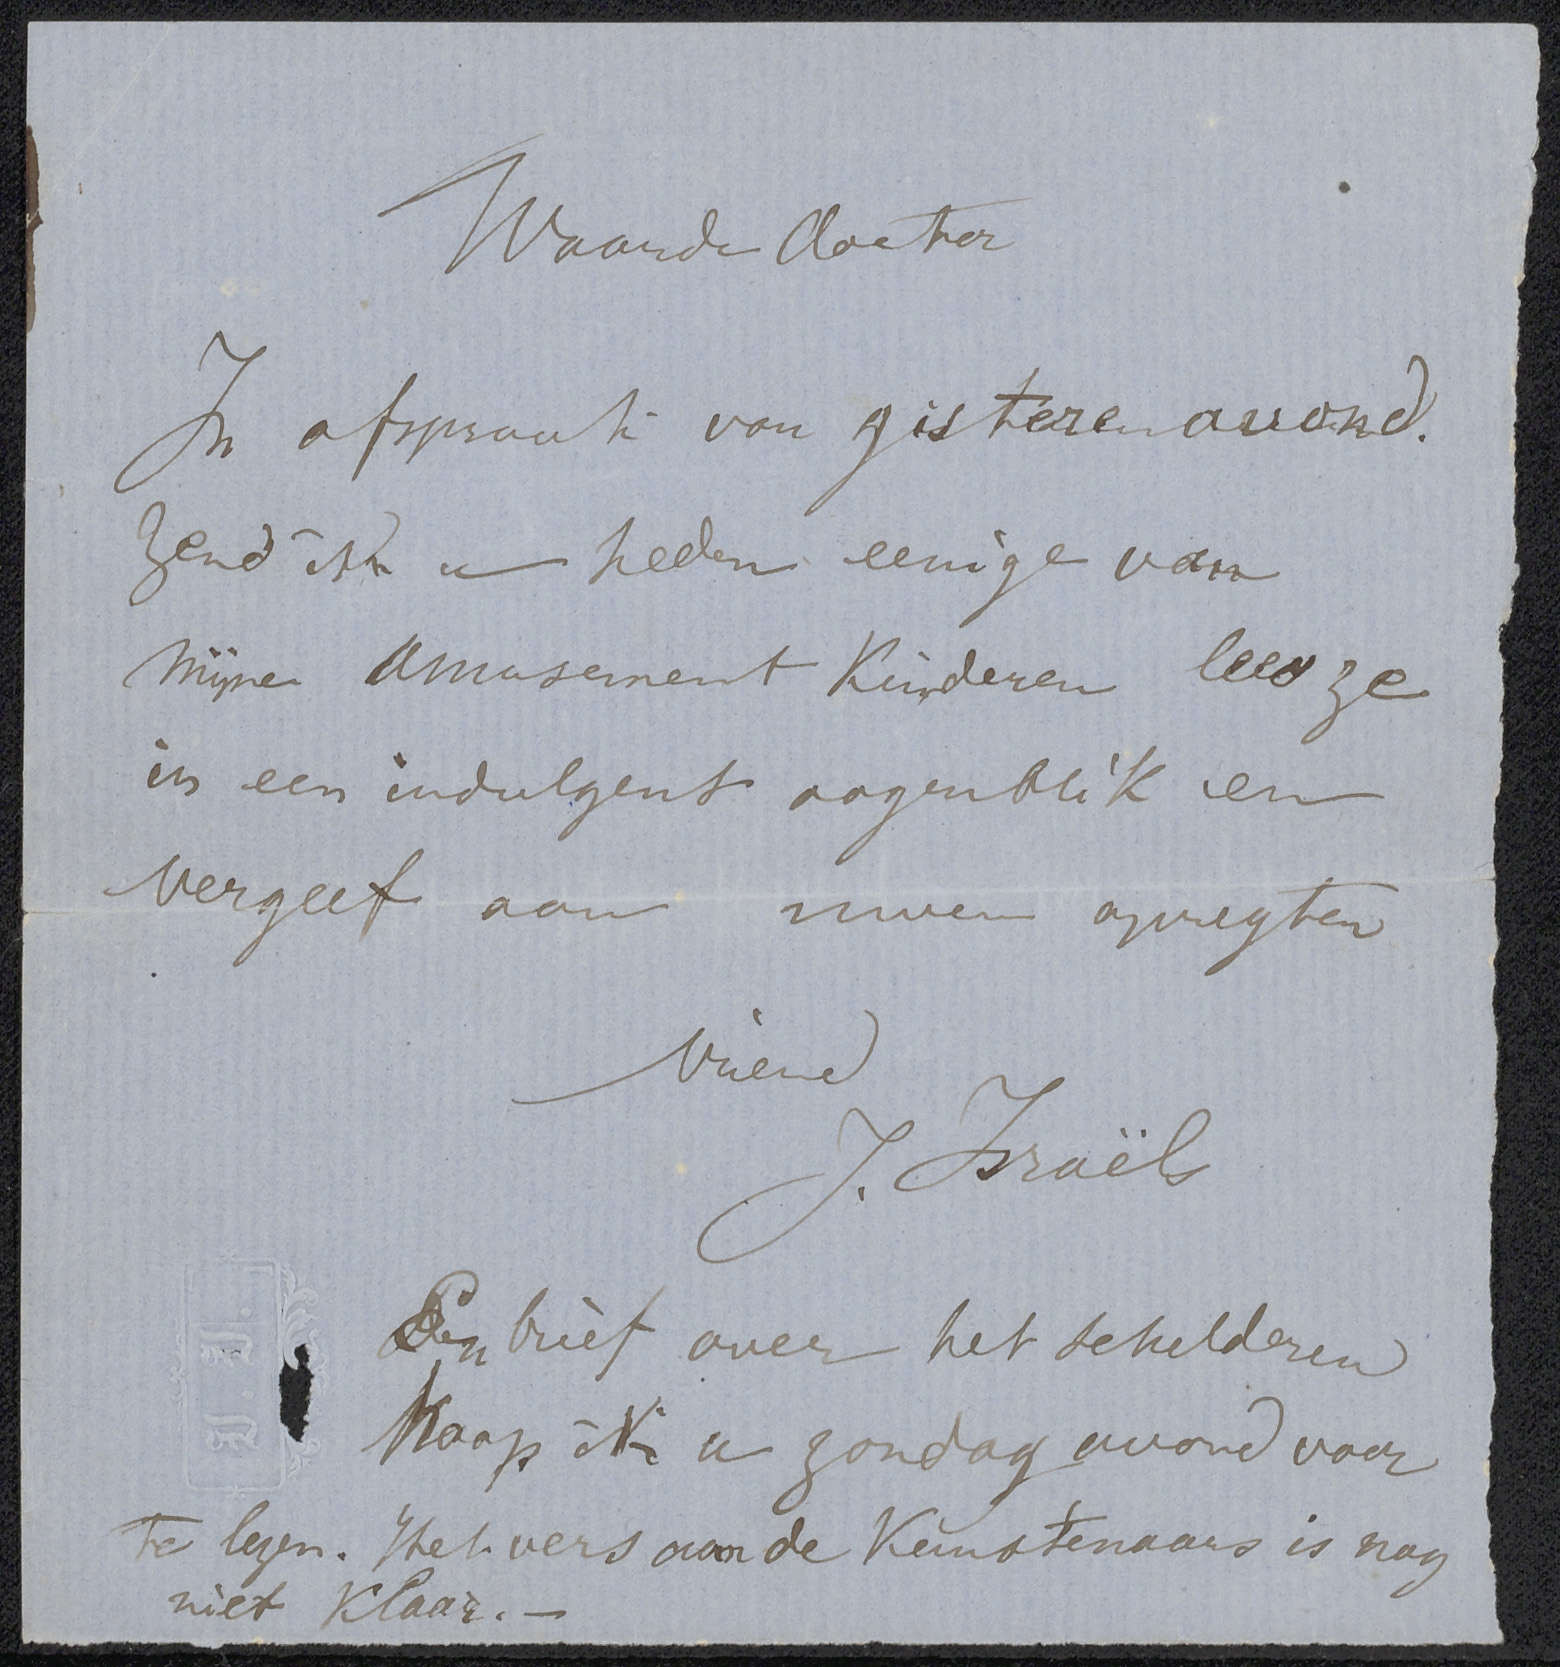 Waarde doctor
In afspraak van gisteren avond.
zend ik u heden eenige van
mijne amusement kinderen lees ze
in een indulgent oogenblik en
vergeef aan uwen opregten
vriend
J. Israëls
Een brief over het schilderen
hoop ik u zondag avond voor
te lezen. Het vers aan de Kunstenaars is nog
niet klaar. —